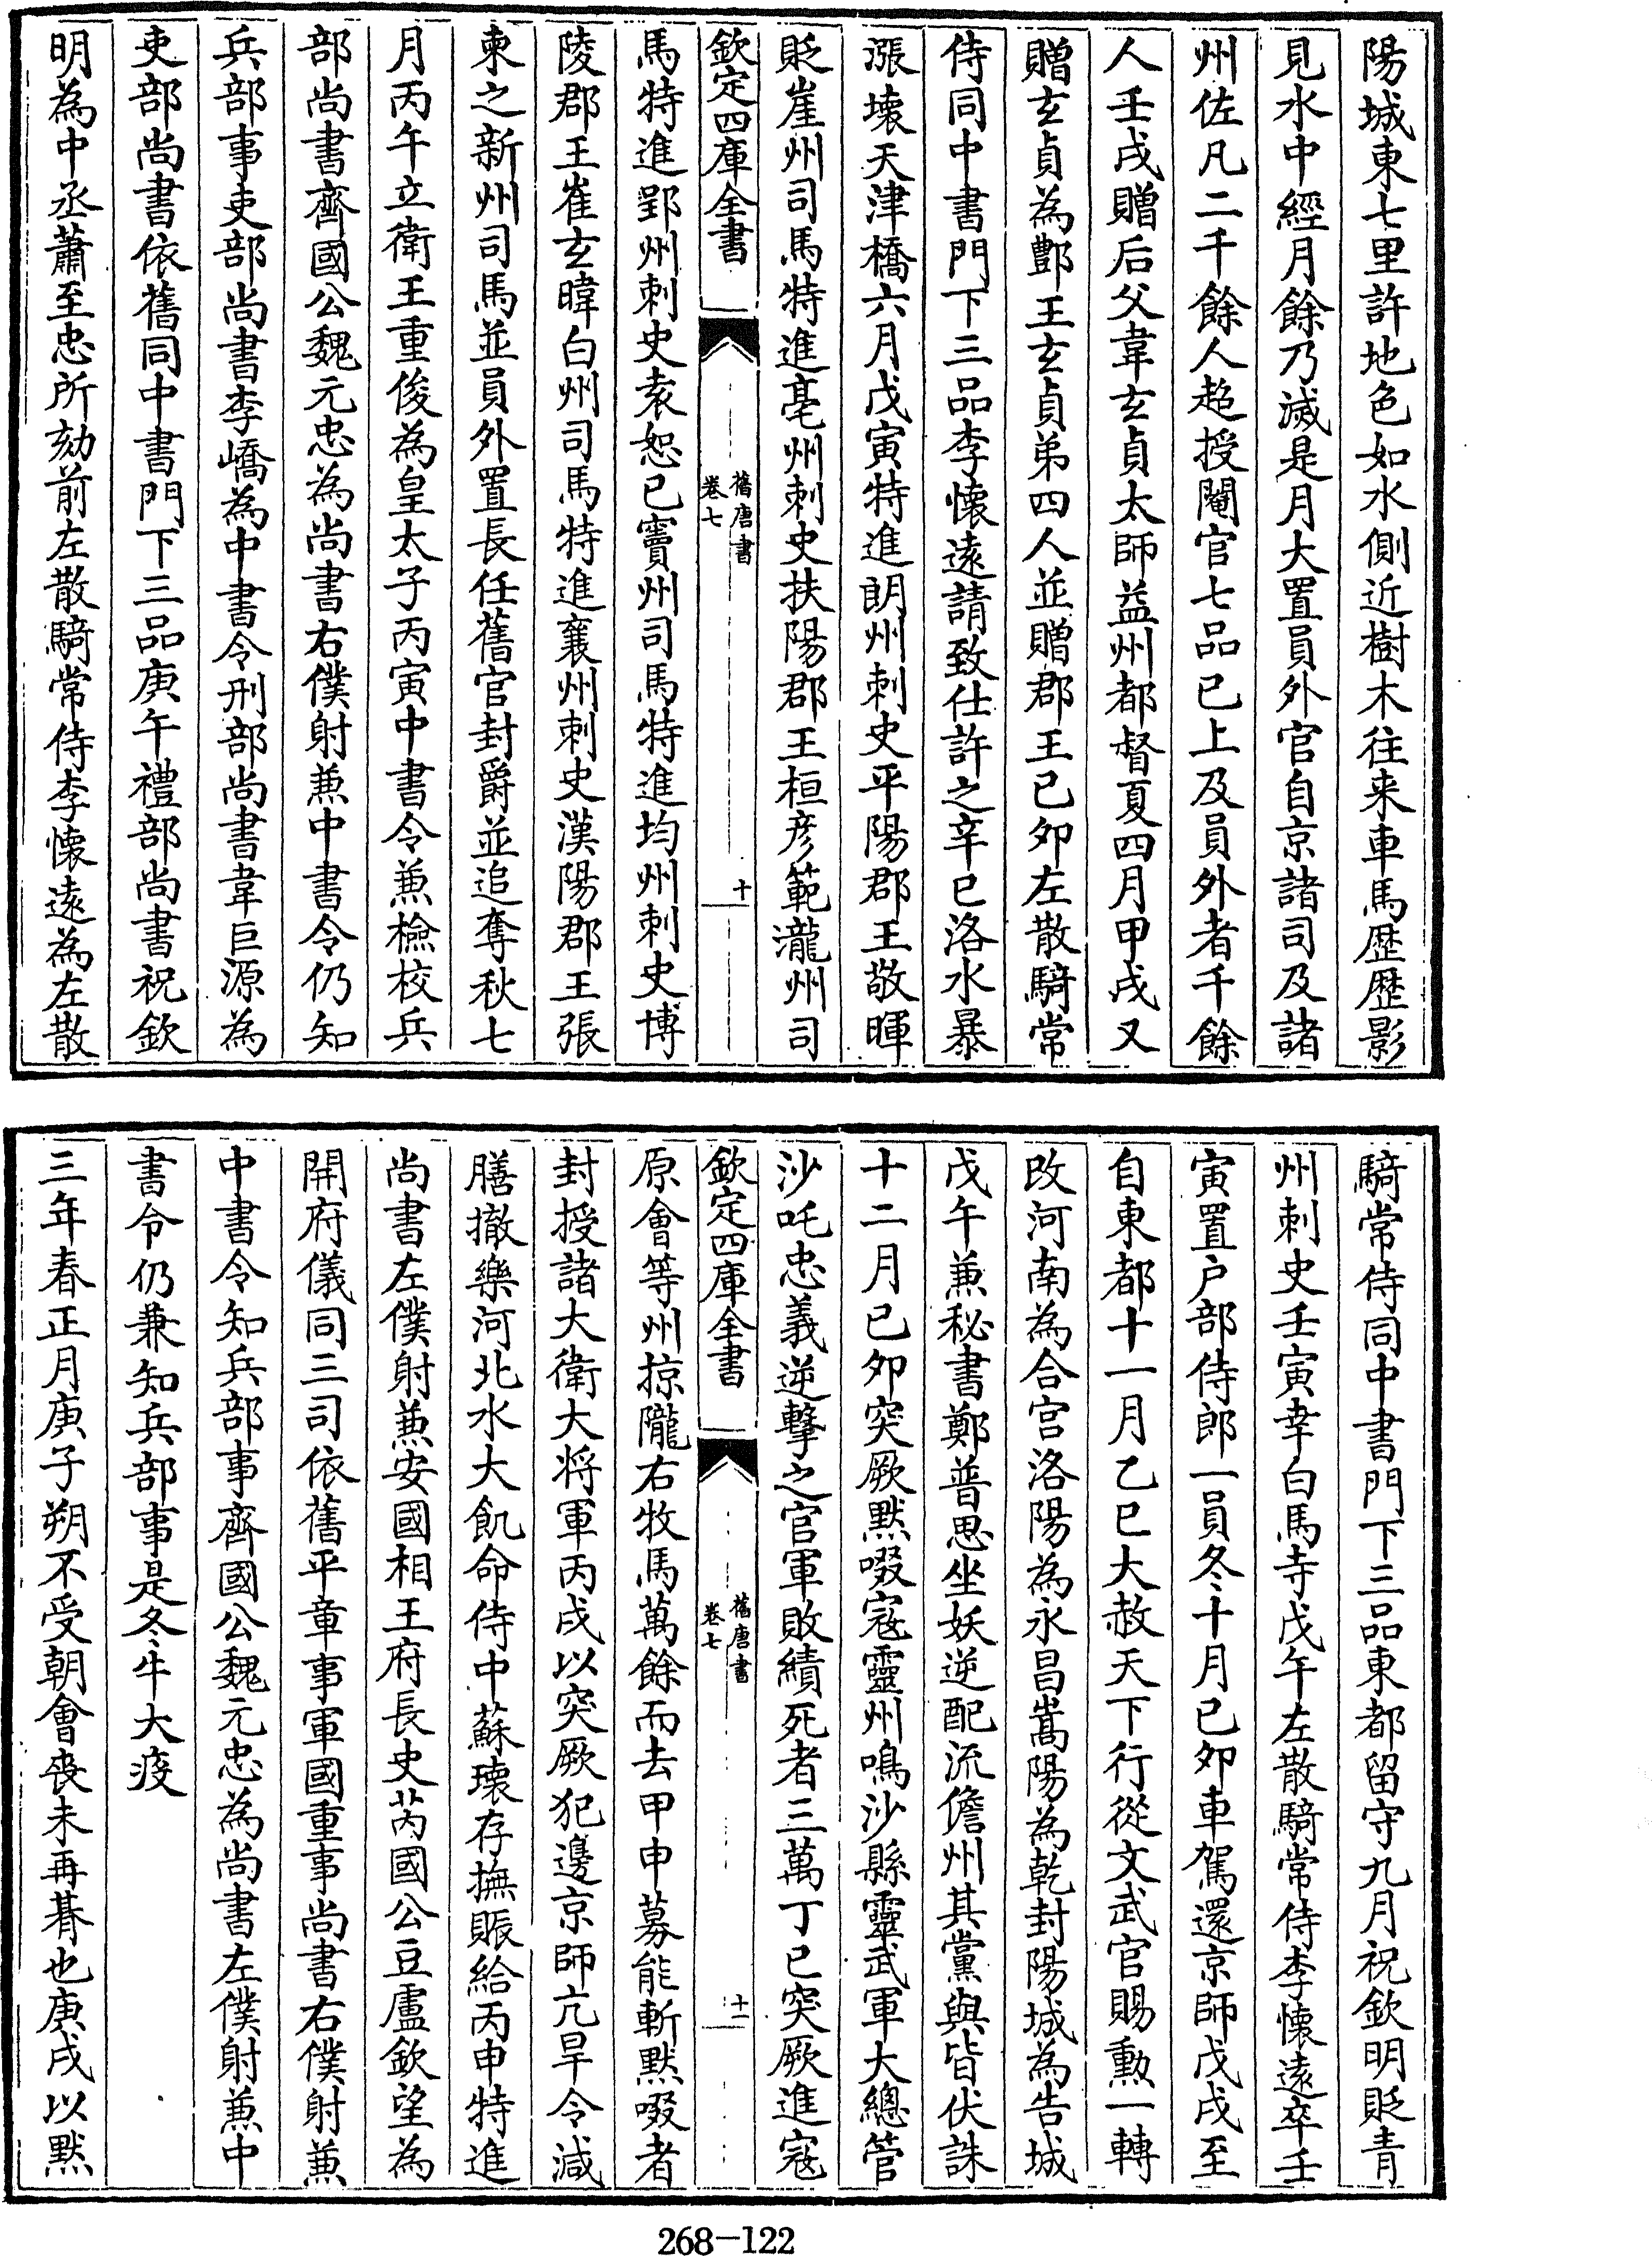 陽城東七里許地色如水側近樹木往来車馬歴歴影
見水中經月餘乃滅是月大置員外官自京諸司及諸
州佐凡二千餘人超授閹官七品已上及員外者千餘
人壬戌贈后父韋玄貞太師益州都督夏四月甲戌又
贈玄貞為酆王玄貞弟四人並贈郡王已夘左散騎常
侍同中書門下三品李懐遠請致仕許之辛已洛水暴
漲壊天津橋六月戊寅特進朗州刺史平陽郡王敬暉
貶崖州司馬特進亳州刺史扶陽郡王桓彦範瀧州司
欽定四庫全書
舊唐書
卷七
十
馬特進郢州刺史袁恕已竇州司馬特進均州刺史博
陵郡王崔玄暐白州司馬特進襄州刺史漢陽郡王張
柬之新州司馬並員外置長任舊官封爵並追奪秋七
月丙午立衛王重俊為皇太子丙寅中書令兼檢校兵
部尚書齊國公魏元忠為尚書右僕射兼中書令仍知
兵部事吏部尚書李嶠為中書令刑部尚書韋巨源為
吏部尚書依舊同中書門下三品庚午禮部尚書祝欽
明為中丞蕭至忠所劾前左散騎常侍李懐遠為左散
騎常侍同中書門下三品東都留守九月祝欽明貶青
州刺史壬寅幸白馬寺戊午左散騎常侍李懐遠卒壬
寅置户部侍郎一員冬十月已夘車駕還京師戊戌至
自東都十一月乙巳大赦天下行從文武官賜勲一轉
改河南為合宫洛陽為永昌嵩陽為乾封陽城為告城
戊午兼秘書鄭普思坐妖逆配流儋州其黨與皆伏誅
十二月已夘突厥默啜寇靈州鳴沙縣靈武軍大總管
沙吒忠義逆擊之官軍敗績死者三萬丁已突厥進寇
欽定四庫全書
舊唐書
卷七
十一
原會等州掠隴右牧馬萬餘而去甲申募能斬默啜者
封授諸大衛大将軍丙戌以突厥犯邊京師亢旱令減
膳撤樂河北水大飢命侍中蘇瓌存撫賑給丙申特進
尚書左僕射兼安國相王府長史芮國公豆盧欽望為
開府儀同三司依舊平章事軍國重事尚書右僕射兼
中書令知兵部事齊國公魏元忠為尚書左僕射兼中
書令仍兼知兵部事是冬牛大疫
三年春正月庚子朔不受朝會喪未再朞也庚戌以默
268-122